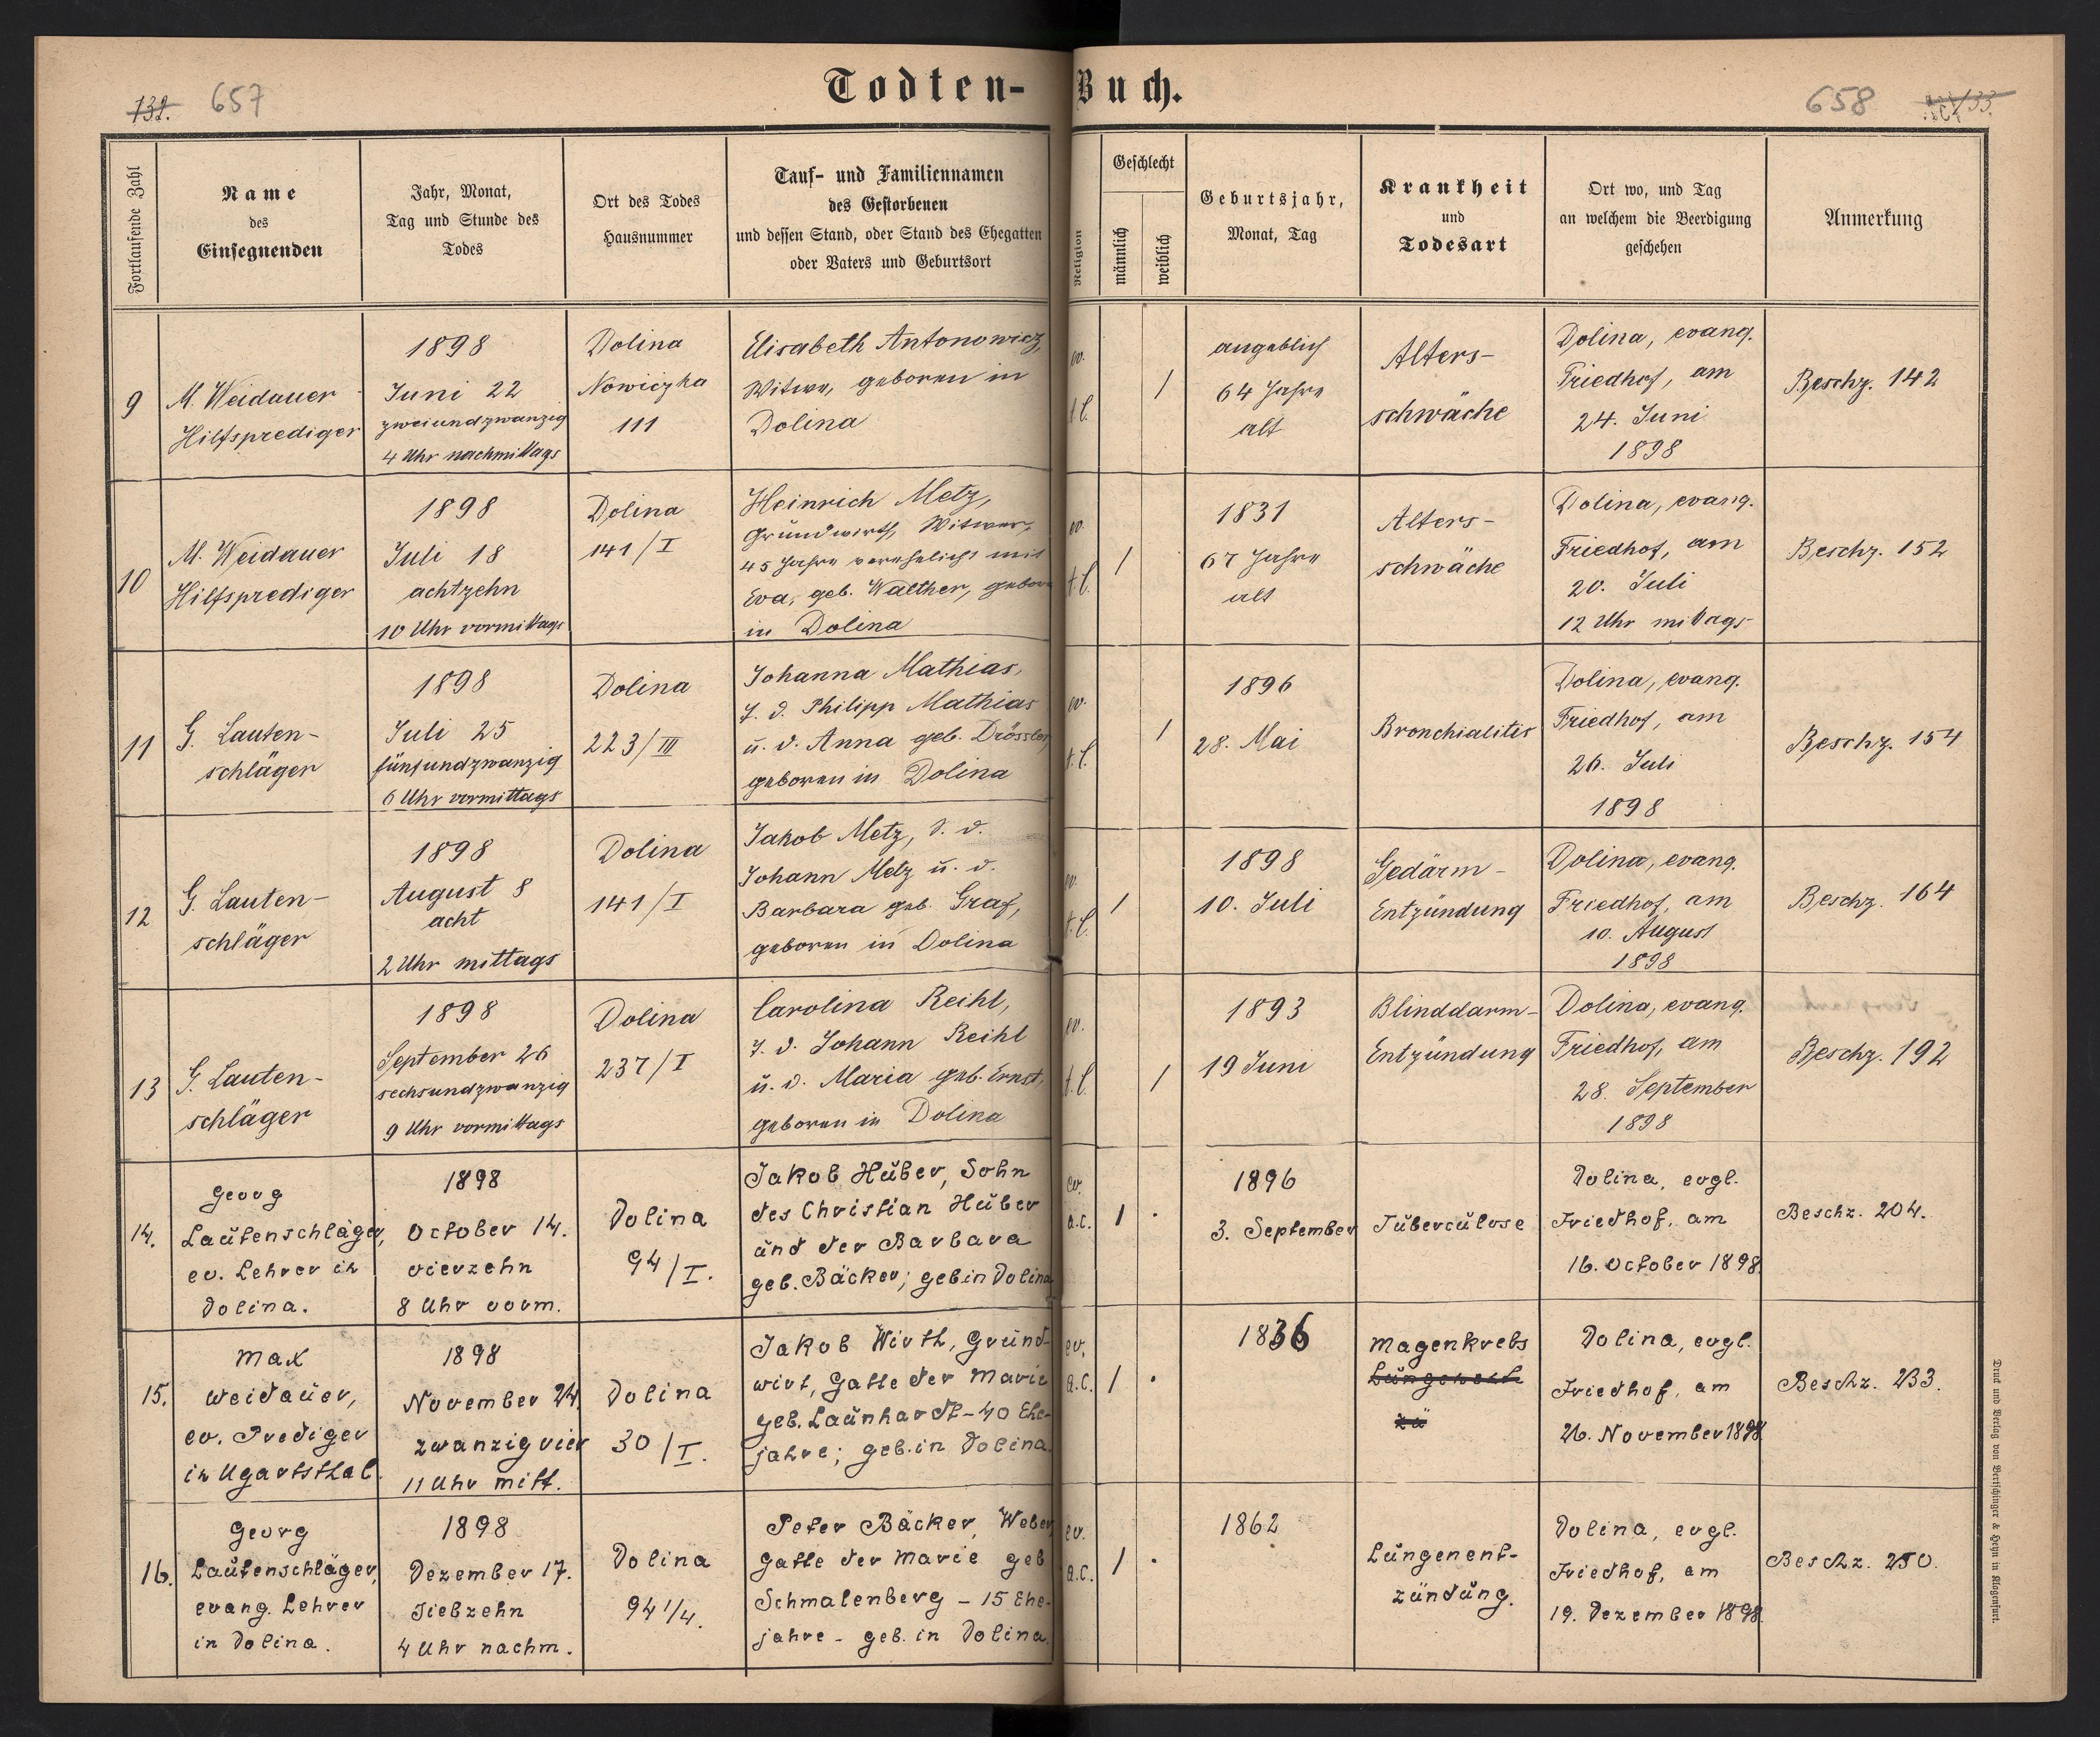 Todten-Buch.
132. 657
658
Fortlaufende Zahl
Name
des
Einsegnenden
Jahr, Monat,
Tag und Stunde des
Todes
Ort des Todes
Hausnummer
Tauf- und Familiennamen
des Gestorbenen
und dessen Stand, oder Stand des Ehegatten
oder Vaters und Geburtsort
Religion
Geschlecht
männlich
weiblich
Geburtsjahr,
Monat, Tag
Krankheit
und
Todesart
Ort wo, und Tag
an welchem die Beerdigung
geschehen
Anmerkung
9
M. Weidauer
Hilfsprediger
1898
Juni 22
zweiundzwanzig
4 Uhr nachmittags
Dolina
Nowiczka
111
Elisabeth Antonowicz,
Witwe, geboren in
Dolina
ev.
1
angeblich
64 Jahre
alt
Alters-
schwäche
Dolina, evang.
Friedhof, am
24. Juni
1898
Beschz. 142
10
M. Weidauer
Hilfsprediger
1898
Juli 18
achtzehn
10 Uhr vormittags
Dolina
141/I
Heinrich Metz,
Grundwirth, Witwer,
45 Jahre verehelicht mit
Eva, geb. Walther, gebore
in Dolina
ev.
1
1831
67 Jahre
alt
Alters-
schwäche
Dolina, evang.
Friedhof, am
20. Juli
12 Uhr mittags
Beschz. 152
11
G. Lauten-
schläger
1898
Juli 25
fünfundzwanzig
6 Uhr vormittags
Dolina
223/III
Johanna Mathias,
T. d. Philipp Mathias
u. d. Anna geb. Drössler,
geboren in Dolina
ev.
1
1896
28. Mai
Bronchialitis
Dolina, evang.
Friedhof, am
26. Juli
1898
Beschz. 154
12
G. Lauten-
schläger
1898
August 8
acht
2 Uhr mittags
Dolina
141/I
Jakob Metz, S. d.
Johann Metz u. d.
Barbara geb. Graf,
geboren in Dolina
ev.
1
1898
10. Juli
Gedärm-
Entzündung
Dolina, evang.
Friedhof, am
10. August
1898
Beschz. 164
13
G. Lauten-
schläger
1898
September 26
sechsundzwanzig
9 Uhr vormittags
Dolina
237/I
Carolina Reihl,
T. d. Johann Reihl
u. d. Maria geb. Ernst,
geboren in Dolina
ev.
1
1893
19 Juni
Blinddarm-
Entzündung
Dolina, evang.
Friedhof, am
28. September
1898
Beschz. 192
14.
Georg
Lautenschläger,
ev. Lehrer in
Dolina.
1898
October 14.
vierzehn
8 Uhr vorm.
Dolina
94/I.
Jakob Huber, Sohn
des Christian Huber
und der Barbara
geb. Bäcker; geb in Dolina
ev.
a.c.
1
1896
3. September
Tuberculose
Dolina, evgl.
Friedhof, am
16. October 1898.
Beschz. 204.
15.
Max
Weidauer,
ev. Prediger
in Ugartsthal.
1898
November 24.
zwanzigvier
11 Uhr mitt.
Dolina
30/I.
Jakob Wirth, Grund-
wirt, Gatte der Marie
geb. Launhardt - 40 Ehe-
jahre; geb. in Dolina.
ev.
a.c.
1
1836
Magenkrebs
Dolina, evgl.
Friedhof, am
26. November 1898
Beschz. 233.
16.
Georg
Lautenschläger,
evang. Lehrer
in Dolina.
1898
Dezember 17.
Siebzehn
4 Uhr nachm.
Dolina
94 1/4.
Peter Bäcker, Weber,
Gatte der Marie geb
Schmalenberg - 15 Ehe-
jahre - geb. in Dolina.
ev.
a.c.
1
1862
Lungenent-
zündung.
Dolina, evgl.
Friedhof, am
19. Dezember 1898.
Beschz. 250.
Druck und Verlag von Bertschinger & Heyn in Klagenfurt.